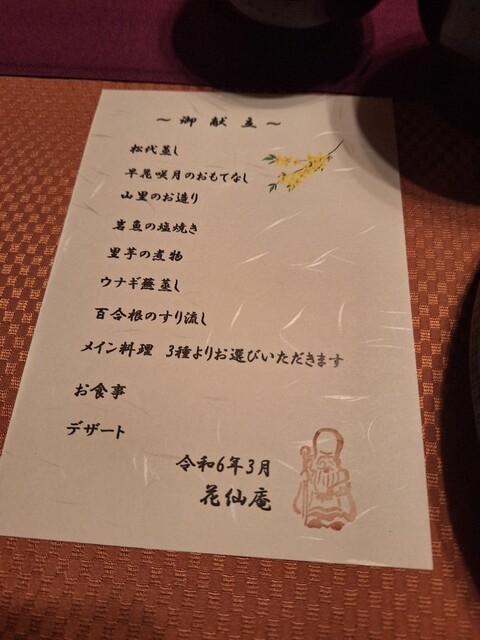 ～御献立～
松代蒸し
早花咲月のおもてなし
山里のお造り
岩魚の塩焼き
里芋の煮物
ウナギ蕪蒸し
百合根のすり流し
メイン料理 3種よりお選びいただきます
お食事
デザート
令和6年3月
花仙庵